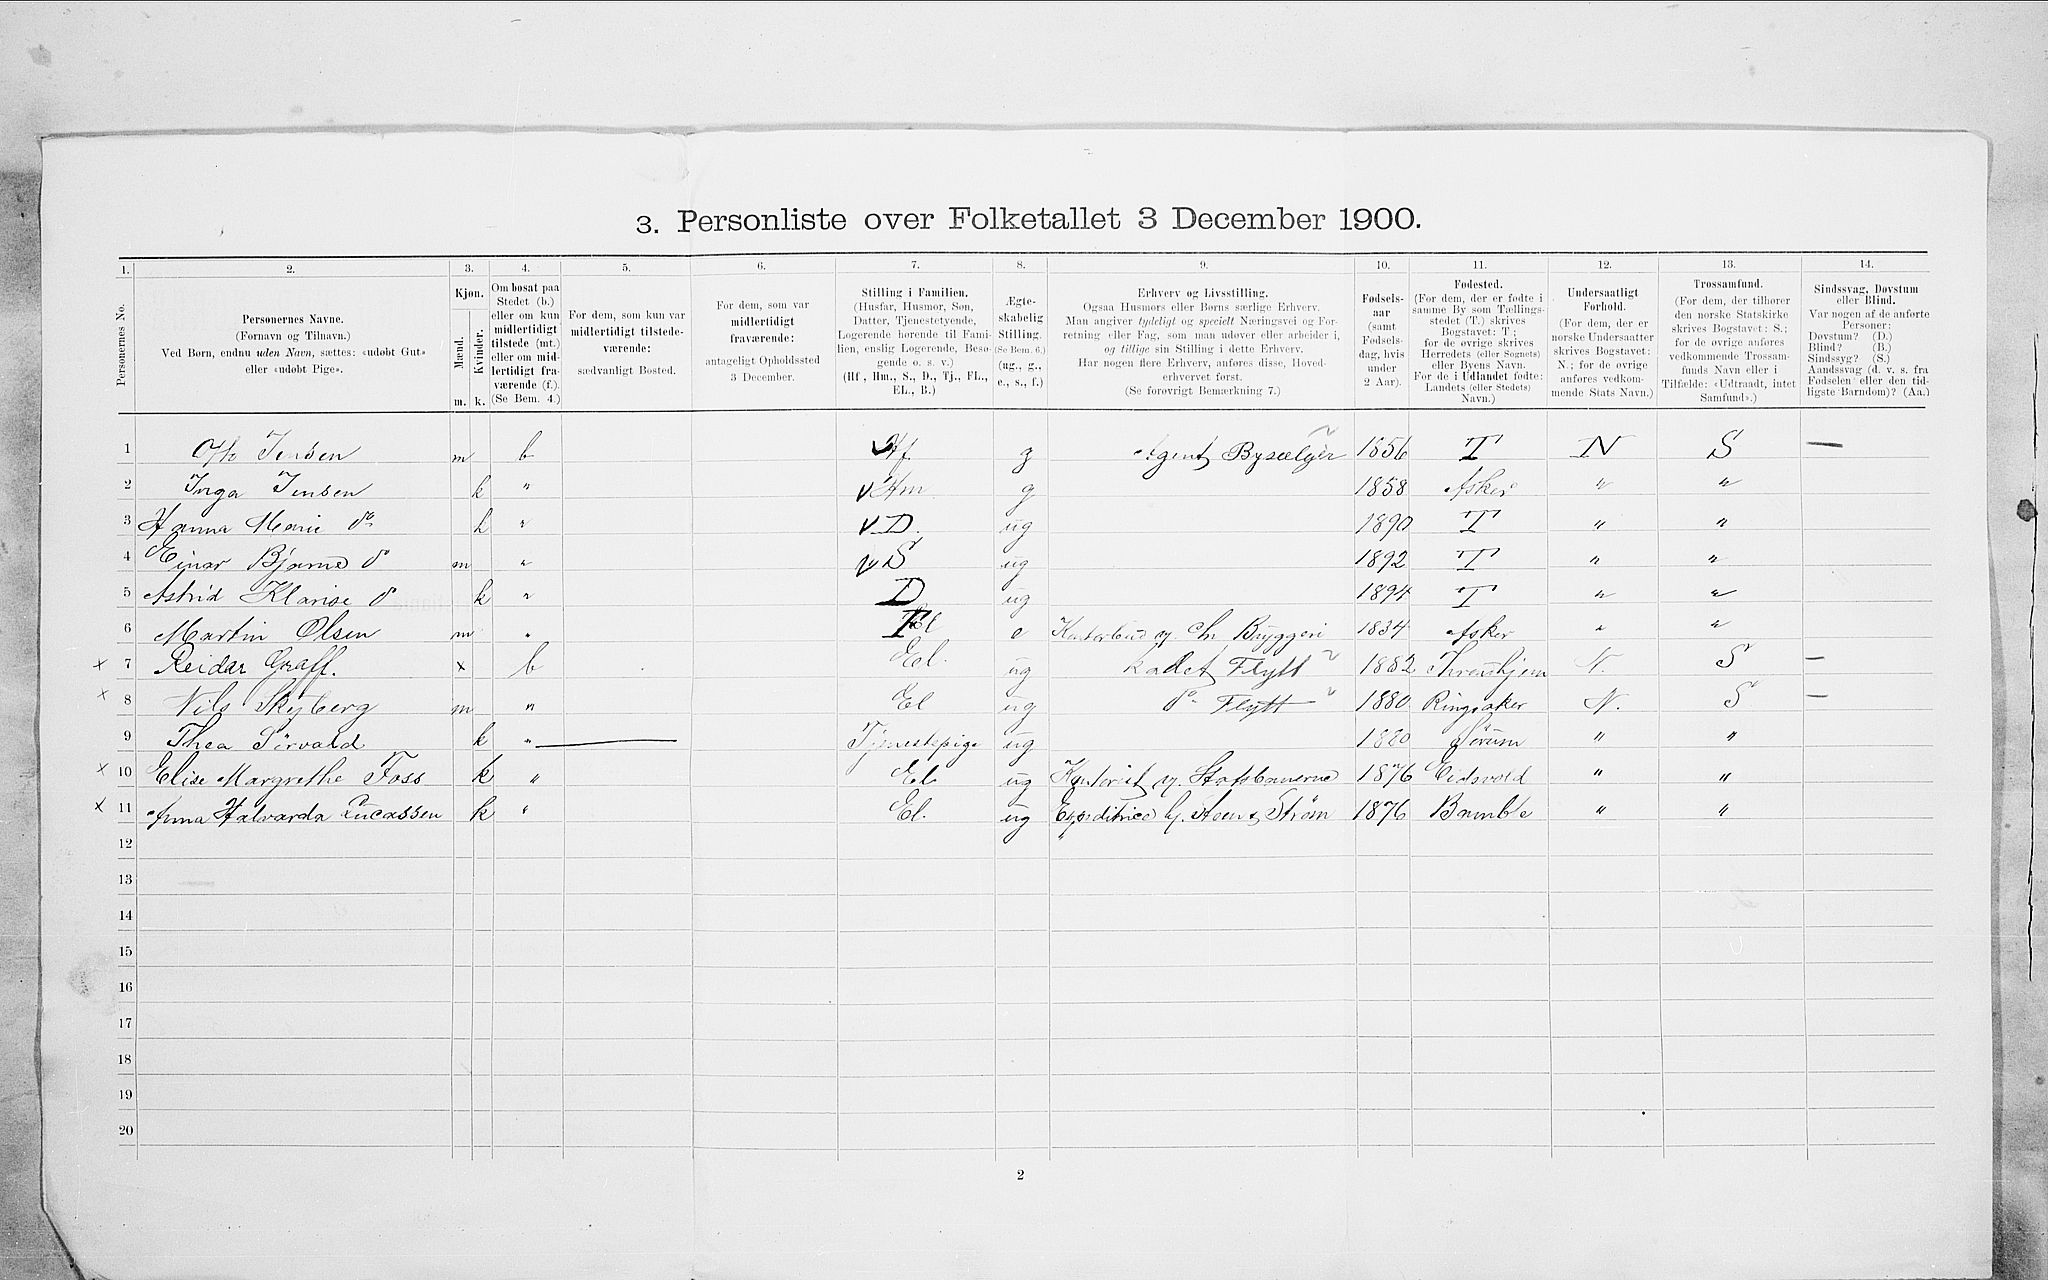 3. Personliste over Folketallet 3 December 1900.
1. 2. 3. 4. 5. 6. 7. 8. 9. 10. 11. 12. 13. 14.
Personernes No.
Personernes Navne.
(Fornavn og Tilnavn.)
Ved Børn, endnu uden Navn, sættes: «udøbt Gut»
eller «udøbt Pige».
Kjøn.
Mænd.
Kvinder.
m. k.
Om bosat paa
Stedet (b.)
eller om kun
midlertidigt
tilstede (mt.)
eller om mid-
lertidigt fra-
værende (f.)
(Se Bem. 4.)
For dem, som kun var
midlertidigt tilstede-
værende:
sædvanligt Bosted.
For dem, som var
midlertidigt
fraværende:
antageligt Opholdssted
3 December.
Stilling i Familien.
(Husfar, Husmor, Søn,
Datter, Tjenestetyende,
Logerende hørende til Fami-
lien, enslig Logerende, Besø-
gende o. s. v.)
(Hf., Hm., S., D., Tj., FL.,
EL., B.)
Ægte-
skabelig
Stilling.
(Se Bem. 6.)
(ug., g.,
e., s., f.)
Erhverv og Livsstilling.
Ogsaa Husmors eller Børns særlige Erhverv.
Man angiver tydeligt og specielt Næringsvei og For-
retning eller Fag, som man udøver eller arbeider i,
og tillige sin Stilling i dette Erhverv.
Har nogen flere Erhverv, anføres disse, Hoved-
erhvervet først.
(Se forøvrigt Bemærkning 7.)
Fødsels-
aar
(samt
Fødsels-
dag, hvis
under
2 Aar).
Fødested.
(For dem, der er fødte i
samme By som Tællings-
stedet (T.) skrives
Bogstavet: T;
for de øvrige skrives
Herredets (eller Sognets)
eller Byens Navn.
For de i Udlandet fødte:
Landets (eller Stedets)
Navn.)
Undersaatligt
Forhold.
(For dem, der er
norske Undersaatter
skrives Bogstavet:
N.; for de øvrige
anføres vedkom-
mende Stats Navn.)
Trossamfund.
(For dem, der tilhører
den norske Statskirke
skrives Bogstavet: S.;
for de øvrige anføres
vedkommende Trossam-
funds Navn eller i
Tilfælde: «Udtraadt, intet
Samfund».)
Sindssvag, Døvstum
eller Blind.
Var nogen af de anførte
Personer:
Døvstum? (D.)
Blind? (B.)
Sindssyg? (S.)
Aandssvag (d. v. s. fra
Fødselen eller den tid-
ligste Barndom)? (Aa.)
1 Otto Jensen m b Hf g Agent, Bysælger 1856 T N S —
2 Inga Jensen k " Hm g 1858 Asker " "
3 Hanna Marie do k " D. ug 1890 T " "
4 Einar Bjarne do m " S ug 1892 T " "
5 Astrid Klarise do k " D ug 1894 T " "
6 Martin Olsen m " El e v. Chr Bryggeri 1834 Asker " "
x 7 Reidar Graff. x b El. ug Kadet Flytt 1882 Thronhjem N. S —
x 8 Nils Skyberg m " El ug do Flytt 1880 Ringsaker N. S —
9 Thea Sörvald k " Tjenestepige ug 1880 Sørum " "
x 10 Elise Margrethe Foss k " El ug Kontorist v. Statsbanerne 1876 Eidsvold " "
x 11 Anna Halvarda Lucassen k " El. ug Expeditrice hj. Steen & Strøm 1876 Bamble " "
12
13
14
15
16
17
18
19
20
2